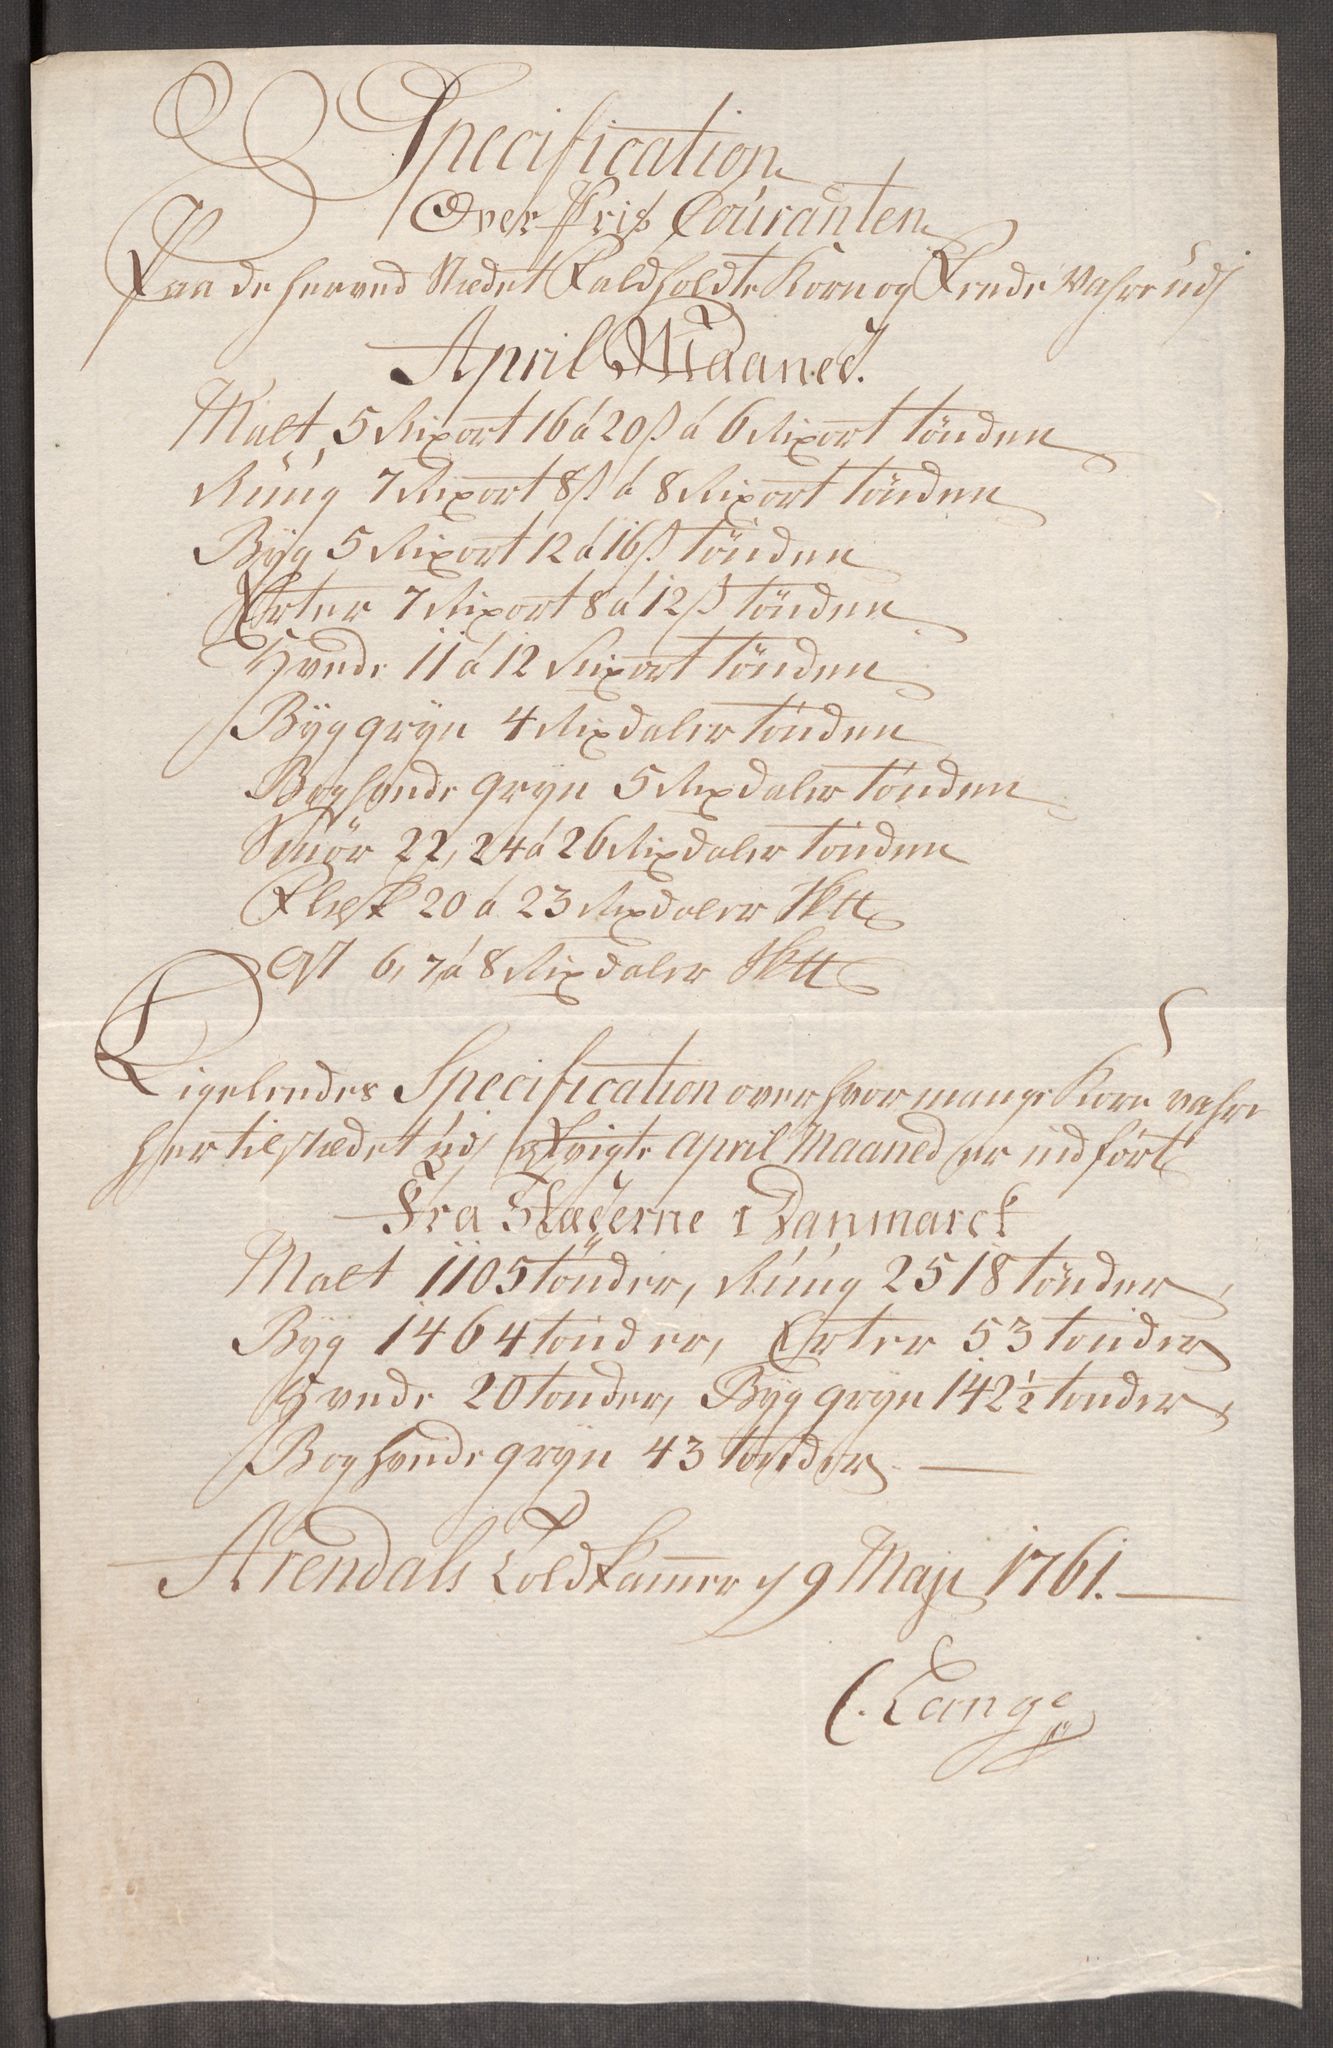 Specification
Over Priß Couranten
Paa de herved Stædet Faldholdte Korn og Fende Vahre udj
April Maaned.
Malt 5 Rixort 16 á 20 ß á 6 Rixort tönden
Rúúg 7 Rixort 8 ß á 8 Rixort tönden
Byg 5 Rixort 12 á 16 ß tönden
Erter 7 Rixort 8 á 12 ß tönden
Hvede 11 á 12 Rixort tönden
Byggryn 4 Rixdaler tönden
Boghvede gryn 5 Rixdaler tönden
Smör 22, 24 á 26 Rixdaler tönden
Flesk 20 á 23 Rixdaler Sk℔
Ost 6, 7 á 8 Rixdaler Sk℔
Ligeleedes Specification over hvor mange Korn vahre
her til stædet udj april Maaned er indfört
Fra Stæderne i Danmarck
Malt 1105 tönder, Rúúg 2518 tönder,
Byg 1464 tönder, Erter 53 tönder
Hvede 20 tonder, Byg gryn 142½ tonder,
Boghvede gryn 43 tönder
Arendals Toldkammer d 9 Maji 1761.
C. Lange